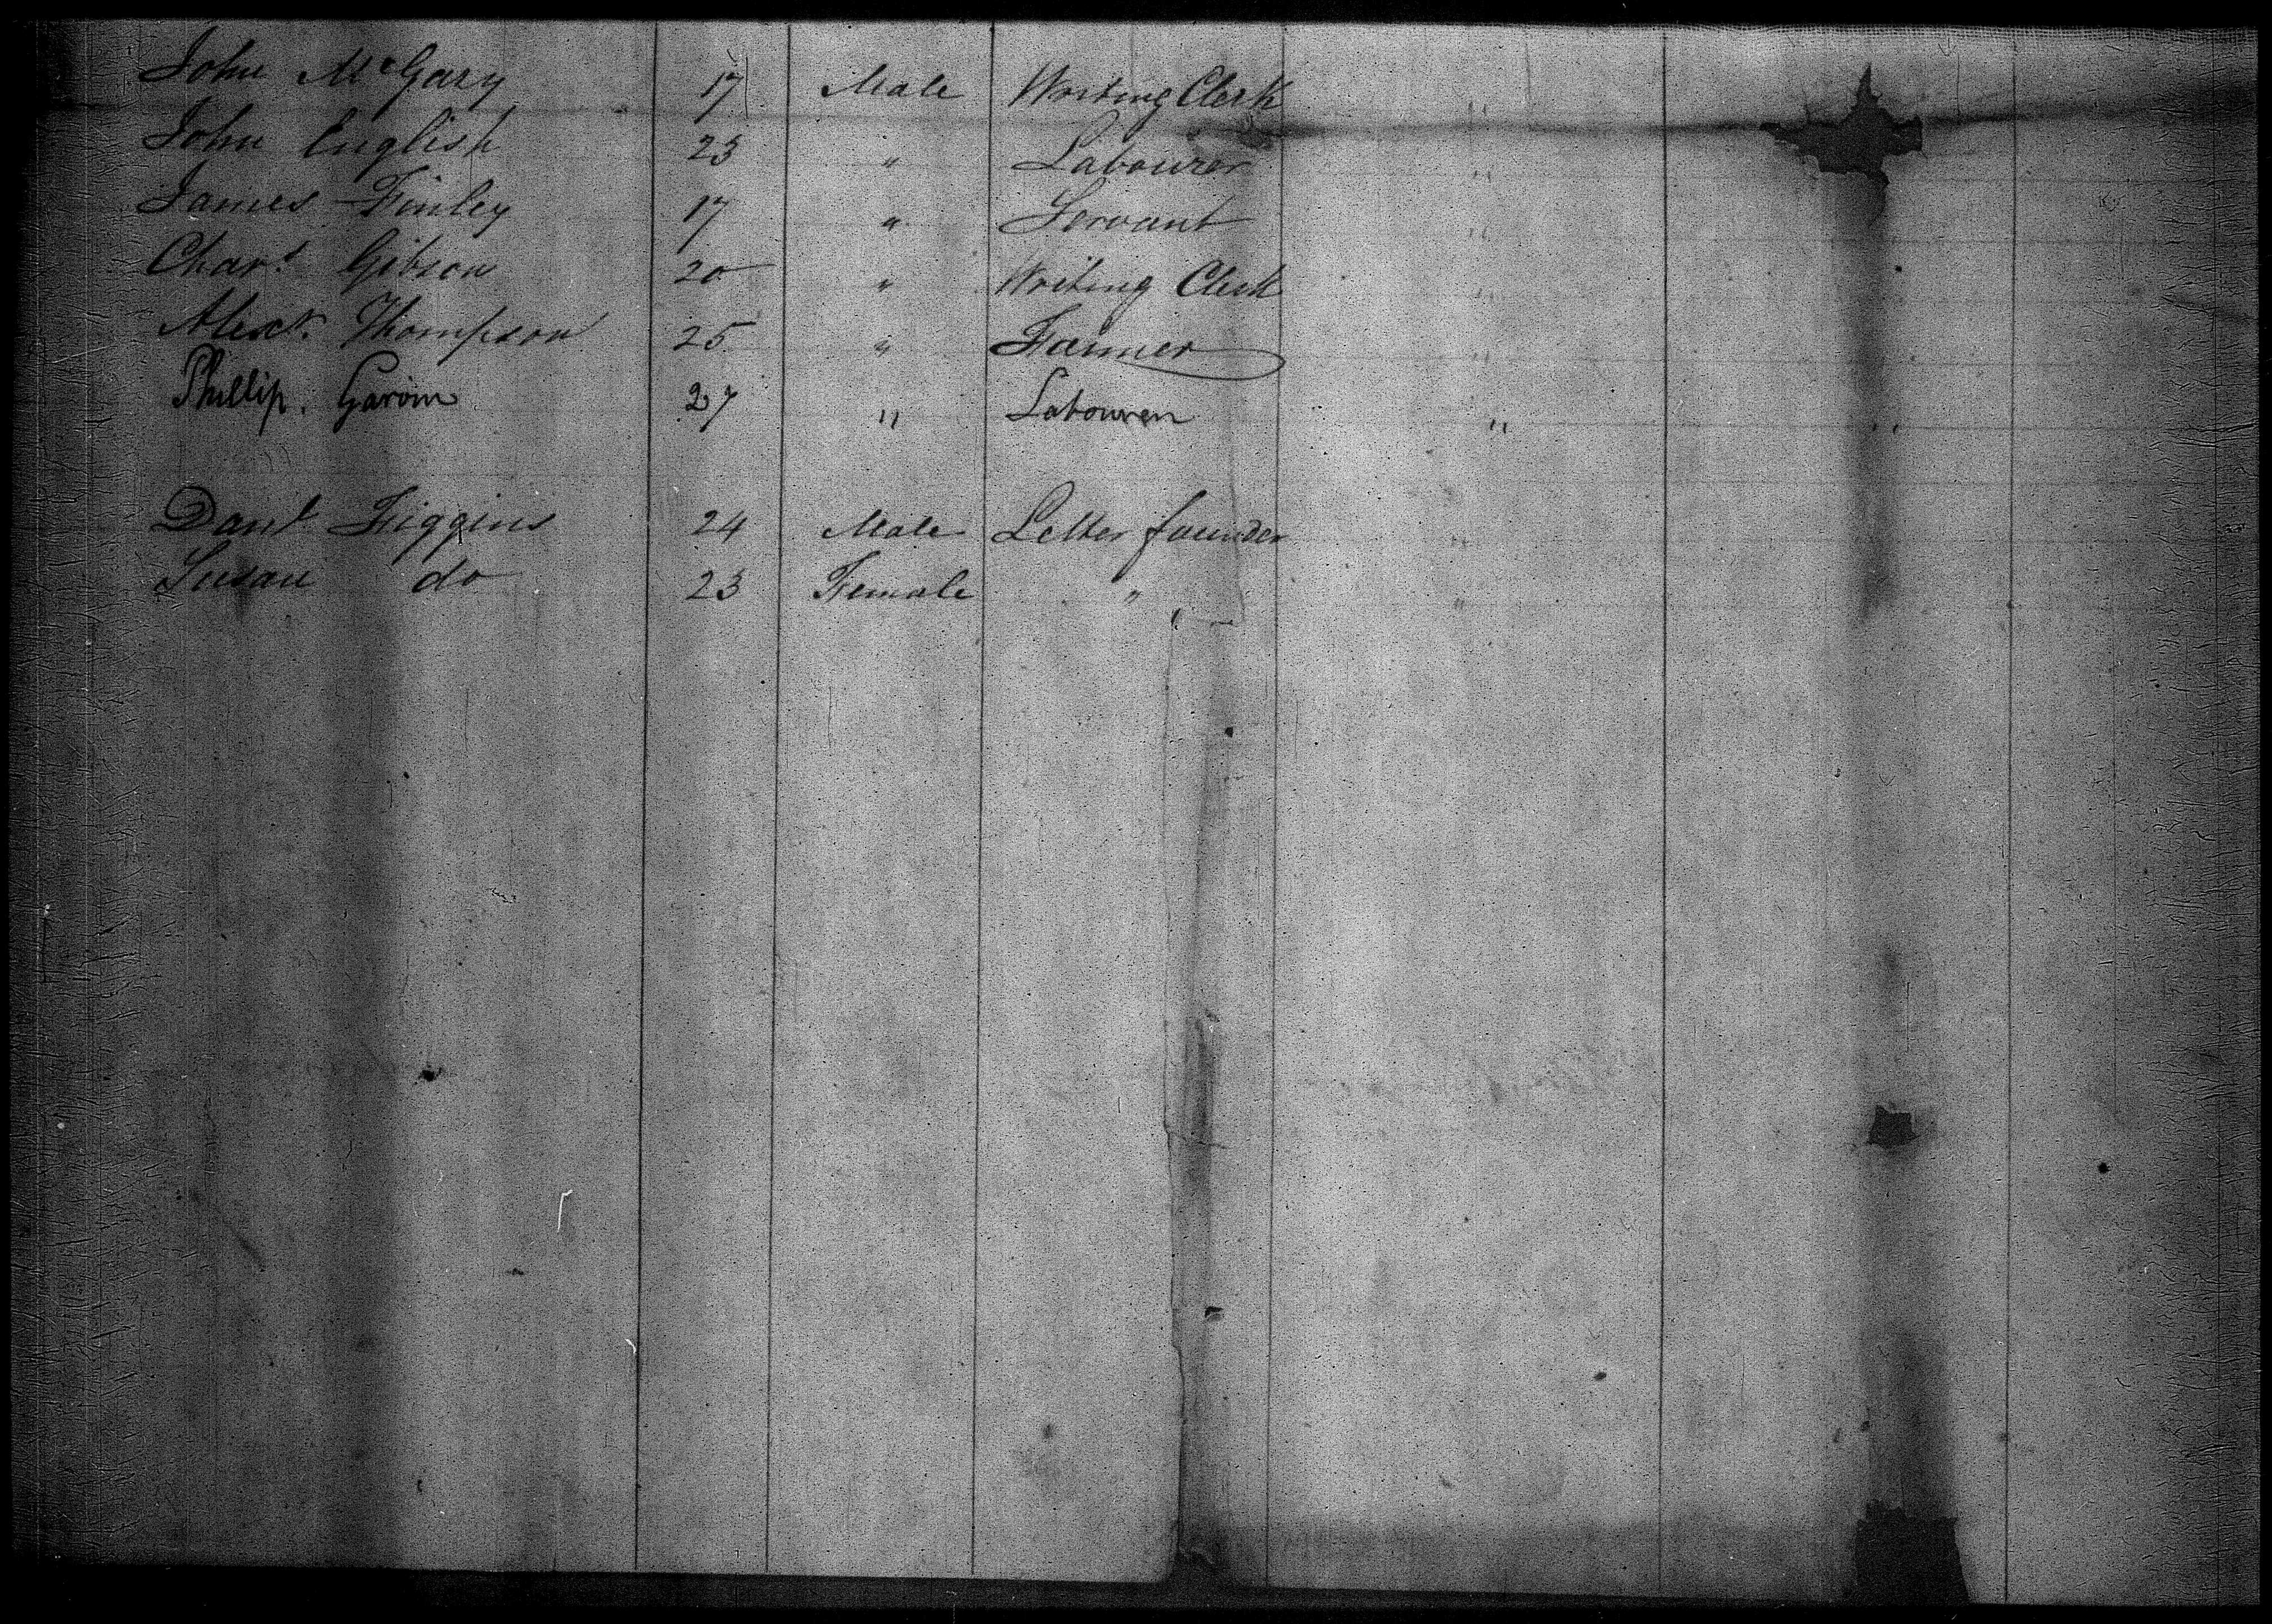 John McGary 17 Male Writing Clerk "
John English 23 " Labourer "
James Finley 17 " Servant "
Chars. Gibson 20 " Writing Clerk "
Alexr. Thompson 25 " Farmer "
Phillip. Garvin 27 " Labourer " "
Danl. Figgins 24 Male Letter founder "
Susan do 23 Female " "